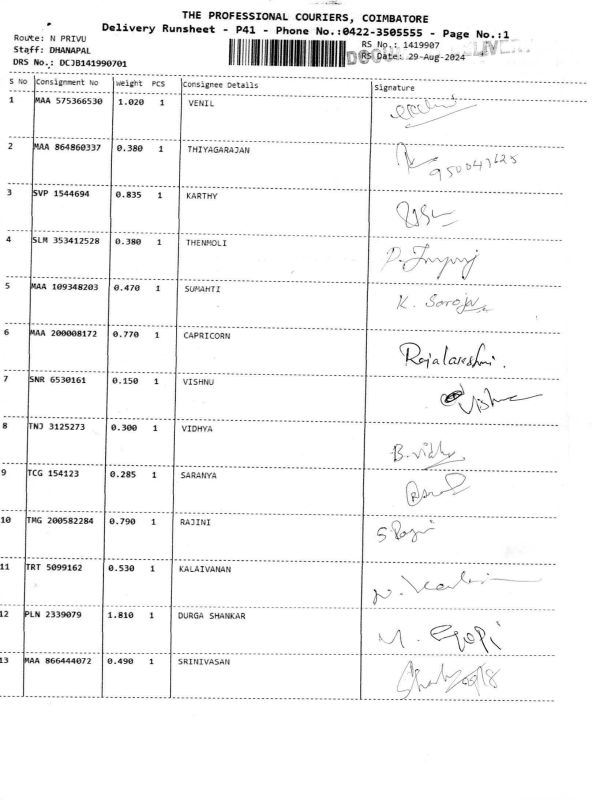 THE PROFESSIONAL COURIERS, COIMBATORE
Delivery Runsheet - P41 - Phone No.:0422-3505555 - Page No.:1
Route: N PRIVU
RS No.: 1419907
Staff: DHANAPAL
RS Date: 29-Aug-2024
DRS No.: DCJB141990701
S No Consignment No Weight PCS Consignee Details Signature
1 MAA 575366530 1.020 1 VENIL
2 MAA 864860337 0.380 1 THIYAGARAJAN
3 SVP 1544694 0.835 1 KARTHY
4 SLM 353412528 0.380 1 THENMOLI
5 MAA 109348203 0.470 1 SUMAHTI K. Saroja
6 MAA 200008172 0.770 1 CAPRICORN Rajalakshmi.
7 SNR 6530161 0.150 1 VISHNU Vishnu
8 TNJ 3125273 0.300 1 VIDHYA B. Vidhy
9 TCG 154123 0.285 1 SARANYA
10 TMG 200582284 0.790 1 RAJINI S Rajni
11 TRT 5099162 0.530 1 KALAIVANAN
12 PLN 2339079 1.810 1 DURGA SHANKAR M. Gopi
13 MAA 866444072 0.490 1 SRINIVASAN